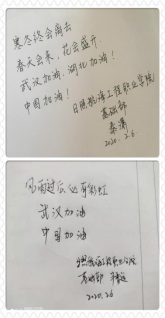 寒冬终会离去
春天会来，花会盛开
武汉加油，湖北加油！
中国加油！
日照航海工程职业学院
基础部
秦潇
2020.2.6.
风雨过后必有彩虹
武汉加油
中国加油
日照航海工程职业学院
2020.2.6